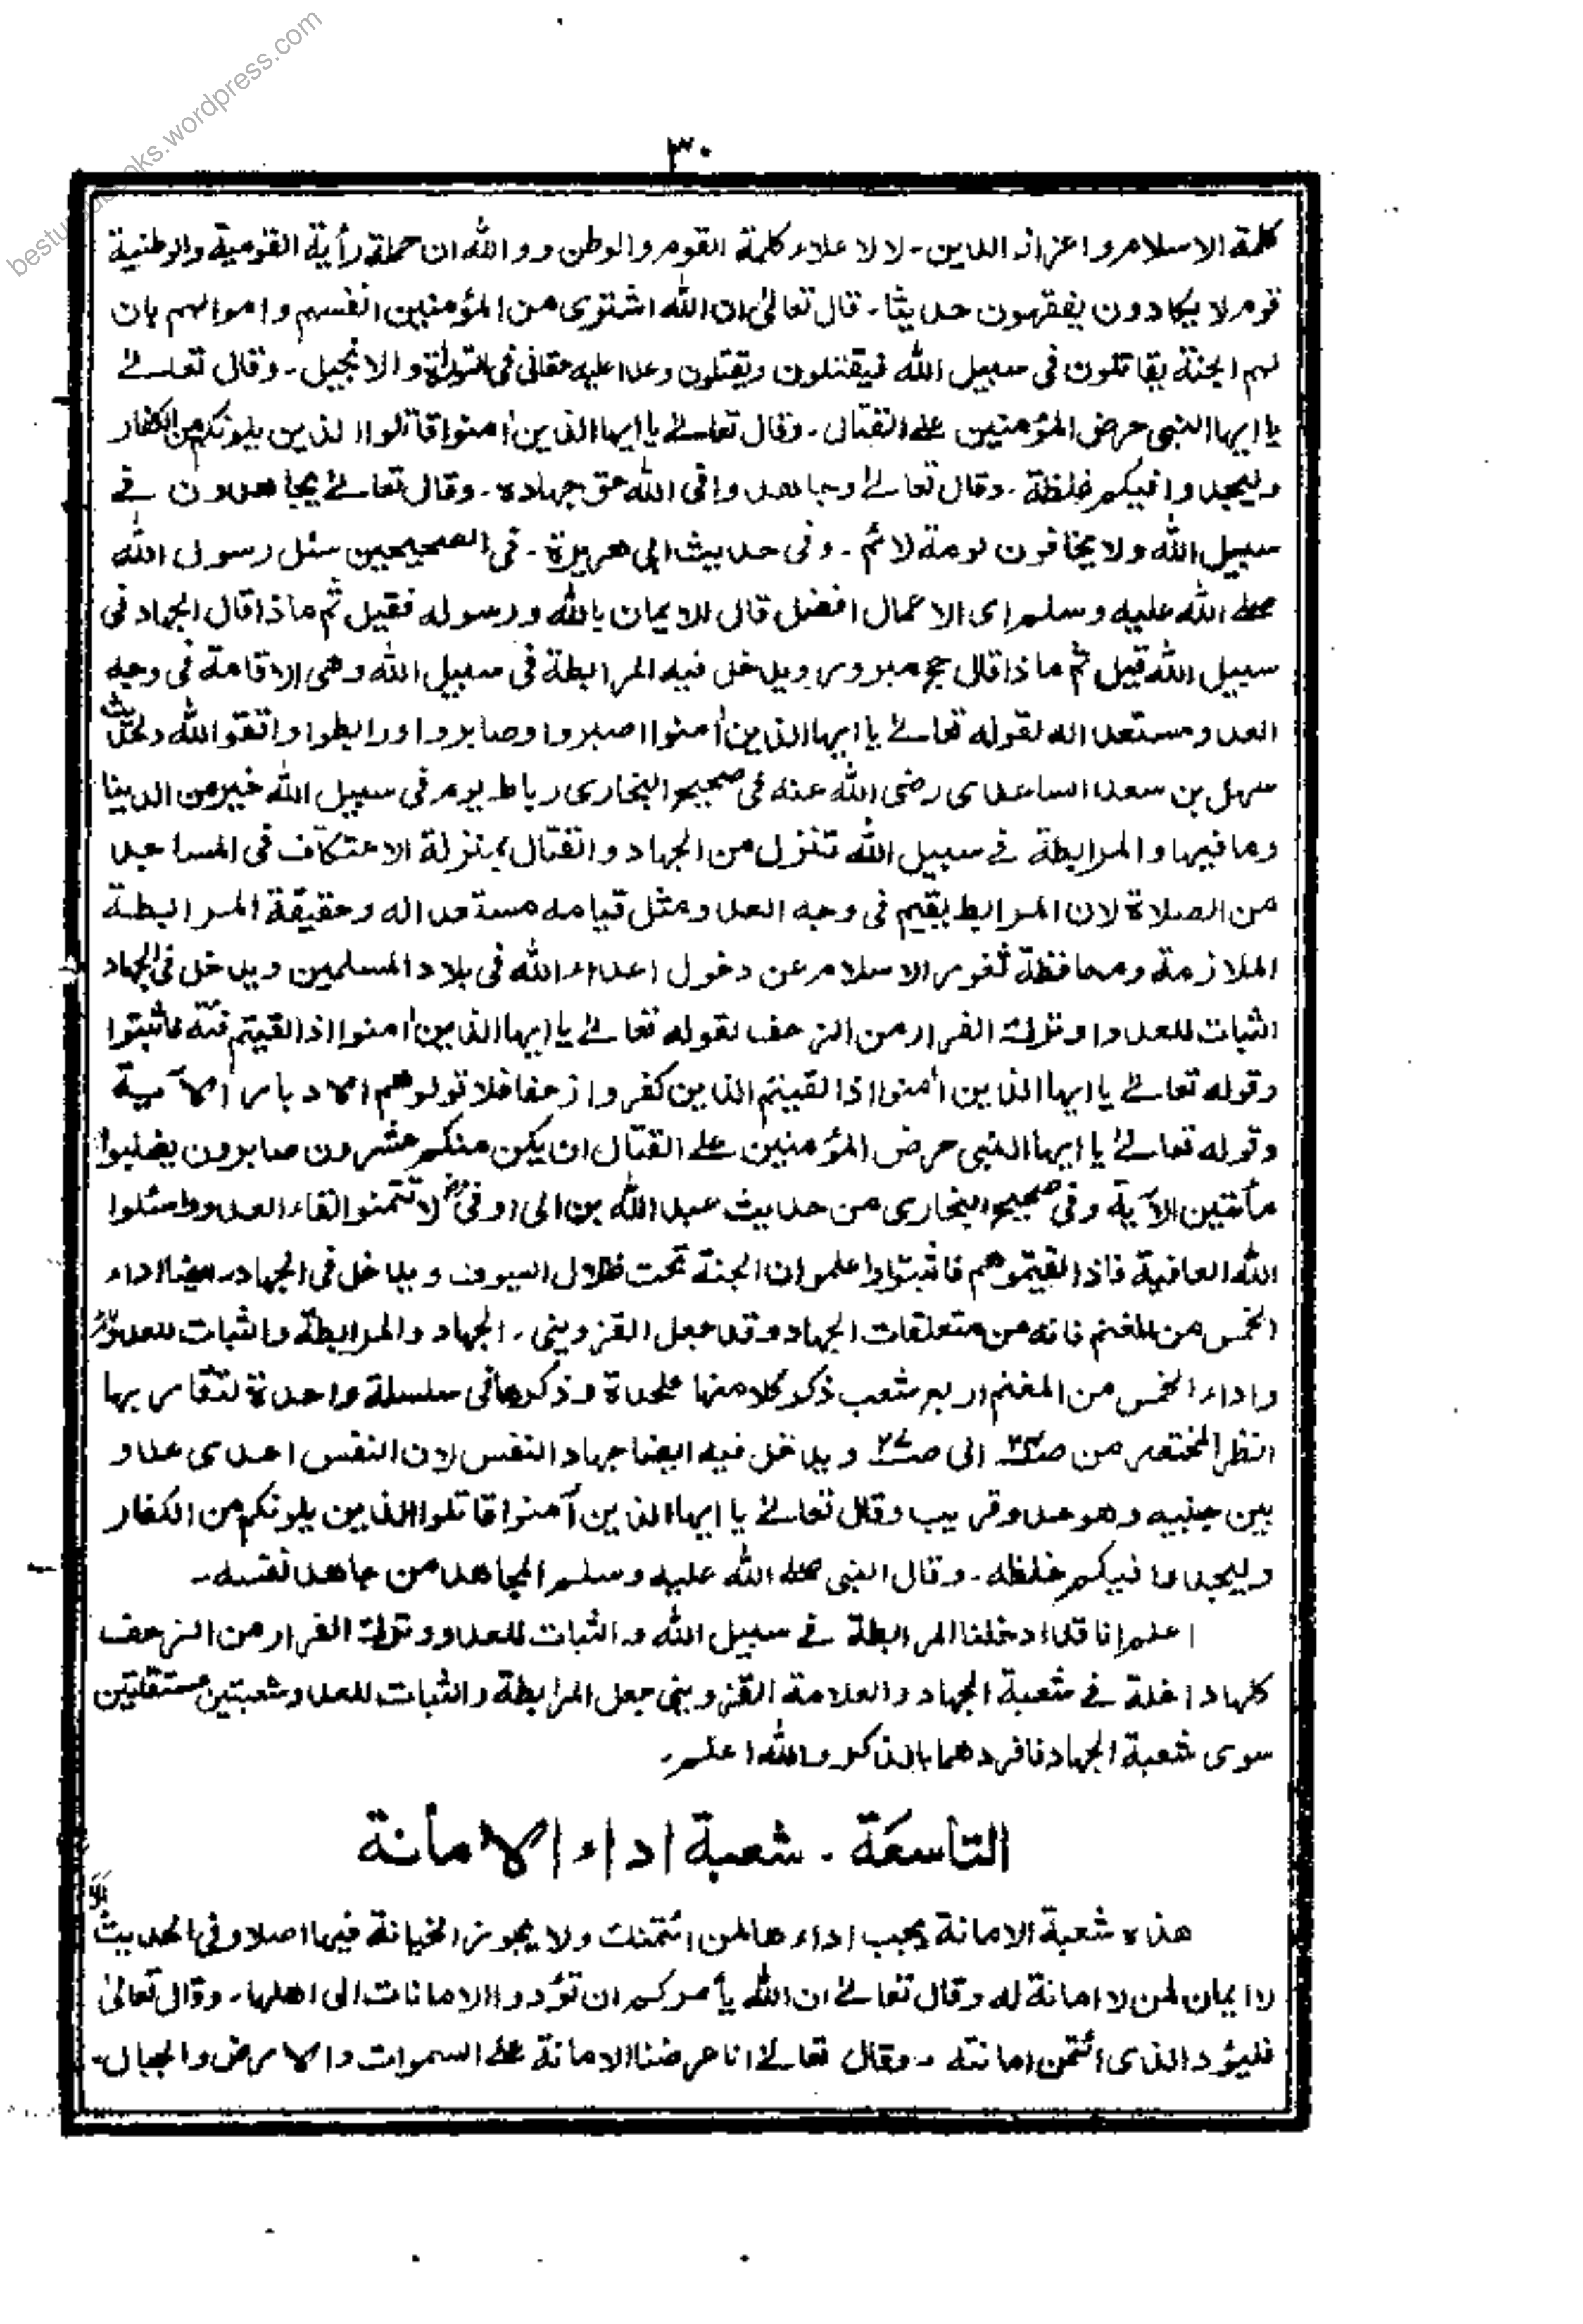 besturdubooks.wordpress.com
٣٠
كلمة الاسلام واعزاز الدين۔ لا لاعلاء كلمة القوم والوطن ووالله ان حملة رأية القومية والوطنية
قوم لا يكادون يفقهون حديثا۔ قال تعالى ان الله اشترى من المؤمنين انفسهم واموالهم بان
لهم الجنة يقاتلون فى سبيل الله فيقتلون ويقتلون وعدا عليه حقا فى التوراة والانجيل۔ وقال تعالے
يا ايها النبى حرض المؤمنين على القتال۔ وقال تعالے يا ايها الذين اٰمنوا قاتلوا الذين يلونكم من الكفار
وليجدوا فيكم غلظة۔ وقال تعالےٰ وجاهدوا فى الله حق جهاده۔ وقال تعالےٰ يجاهدون فے
سبيل الله ولا يخافون لومة لائم۔ وفى حديث ابى هريرة۔ فى الصحيحين سئل رسول الله
صلى الله عليه وسلم اى الاعمال افضل قال الايمان بالله ورسوله فقيل ثم ماذا قال الجهاد فى
سبيل الله قيل ثم ماذا قال حج مبرور ويدخل فيه المرابطة فى سبيل الله وهى الاقامة فى وجه
العدو مستعدا له لقوله تعالےٰ يا ايها الذين اٰمنوا اصبروا وصابروا ورابطوا واتقوا الله ولحديث
سهل بن سعد الساعدى رضى الله عنه فى صحيح البخارى رباط يوم فى سبيل الله خير من الدنيا
وما فيها والمرابطة فے سبيل الله تنزل من الجهاد والقتال بمنزلة الاعتكاف فى المساجد
من الصلاة لان المرابط يقيم فى وجه العدو مثل قيامه مستعدا له وحقيقة المرابطة
الملازمة ومحافظة ثغور الاسلام عن دخول اعداء الله فى بلاد المسلمين ويدخل فى الجهاد
الثبات للعدو وترك الفرار من الزحف لقوله تعالےٰ يا ايها الذين اٰمنوا اذا لقيتم فئة فاثبتوا
وقوله تعالےٰ يا ايها الذين اٰمنوا اذا لقيتم الذين كفروا زحفا فلا تولوهم الادبار الآية
وقوله تعالےٰ يا ايها النبى حرض المؤمنين على القتال ان يكن منكم عشرون صابرون يغلبوا
مأتين الآية وفى صحيح البخارى من حديث عبد الله بن ابى اوفىٰ لا تتمنوا لقاء العدو واسئلوا
الله العافية فاذا لقيتموهم فاثبتوا واعلموا ان الجنة تحت ظلال السيوف ويدخل فى الجهاد ايضا اداء
الخمس من المغنم فانه من متعلقات الجهاد وقد جعل القزوينى۔ الجهاد والمرابطة والثبات للعدو
واداء الخمس من المغنم اربع شعب ذكر كلا منها علحدة وذكرها فى سلسلة واحدة لتقارىبها
انظر المختصر من الى ويدخل فيه ايضا جهاد النفس لان النفس اعدى عدو
بين جنبيه وهو عدو قريب وقال تعالےٰ يا ايها الذين آمنوا قاتلوا الذين يلونكم من الكفار
وليجدوا فيكم غلظه۔ وقال النبى صلى الله عليه وسلم المجاهد من جاهد نفسه۔
اعلم انا قد ادخلنا المرابطة فے سبيل الله والثبات للعدو وترك الفرار من الزحف
كلها داخلة فے شعبة الجهاد والعلامة القزوينى جعل المرابطة والثبات للعدو شعبتين مستقلتين
سوى شعبة الجهاد فافردهما بالذكر والله اعلم۔
التاسعة۔ شعبة اداء الامانة
هذه شعبة الامانة يجب اداءها لمن ائتمنك ولا يجوز الخيانة فيها اصلا وفى الحديث الا
لا ايمان لمن لا امانة له وقال تعالےٰ ان الله يأمركم ان تؤدوا الامانات الى اهلها۔ وقال تعالىٰ
فليؤد الذى ائتمن امانته۔ وقال تعالےٰ انا عرضنا الامانة على السموات والارض والجبال۔